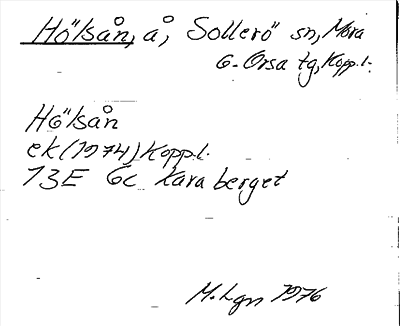 Hölsån, å, Sollerö sn, Mora
o. Orsa tg, Kopp. l.
Hölsån
ek (1974) Kopp. l.
13E 6c Xara berget
M. Lgn 1976